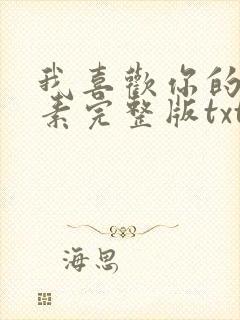 我喜歡你的
素完整版txt
海思